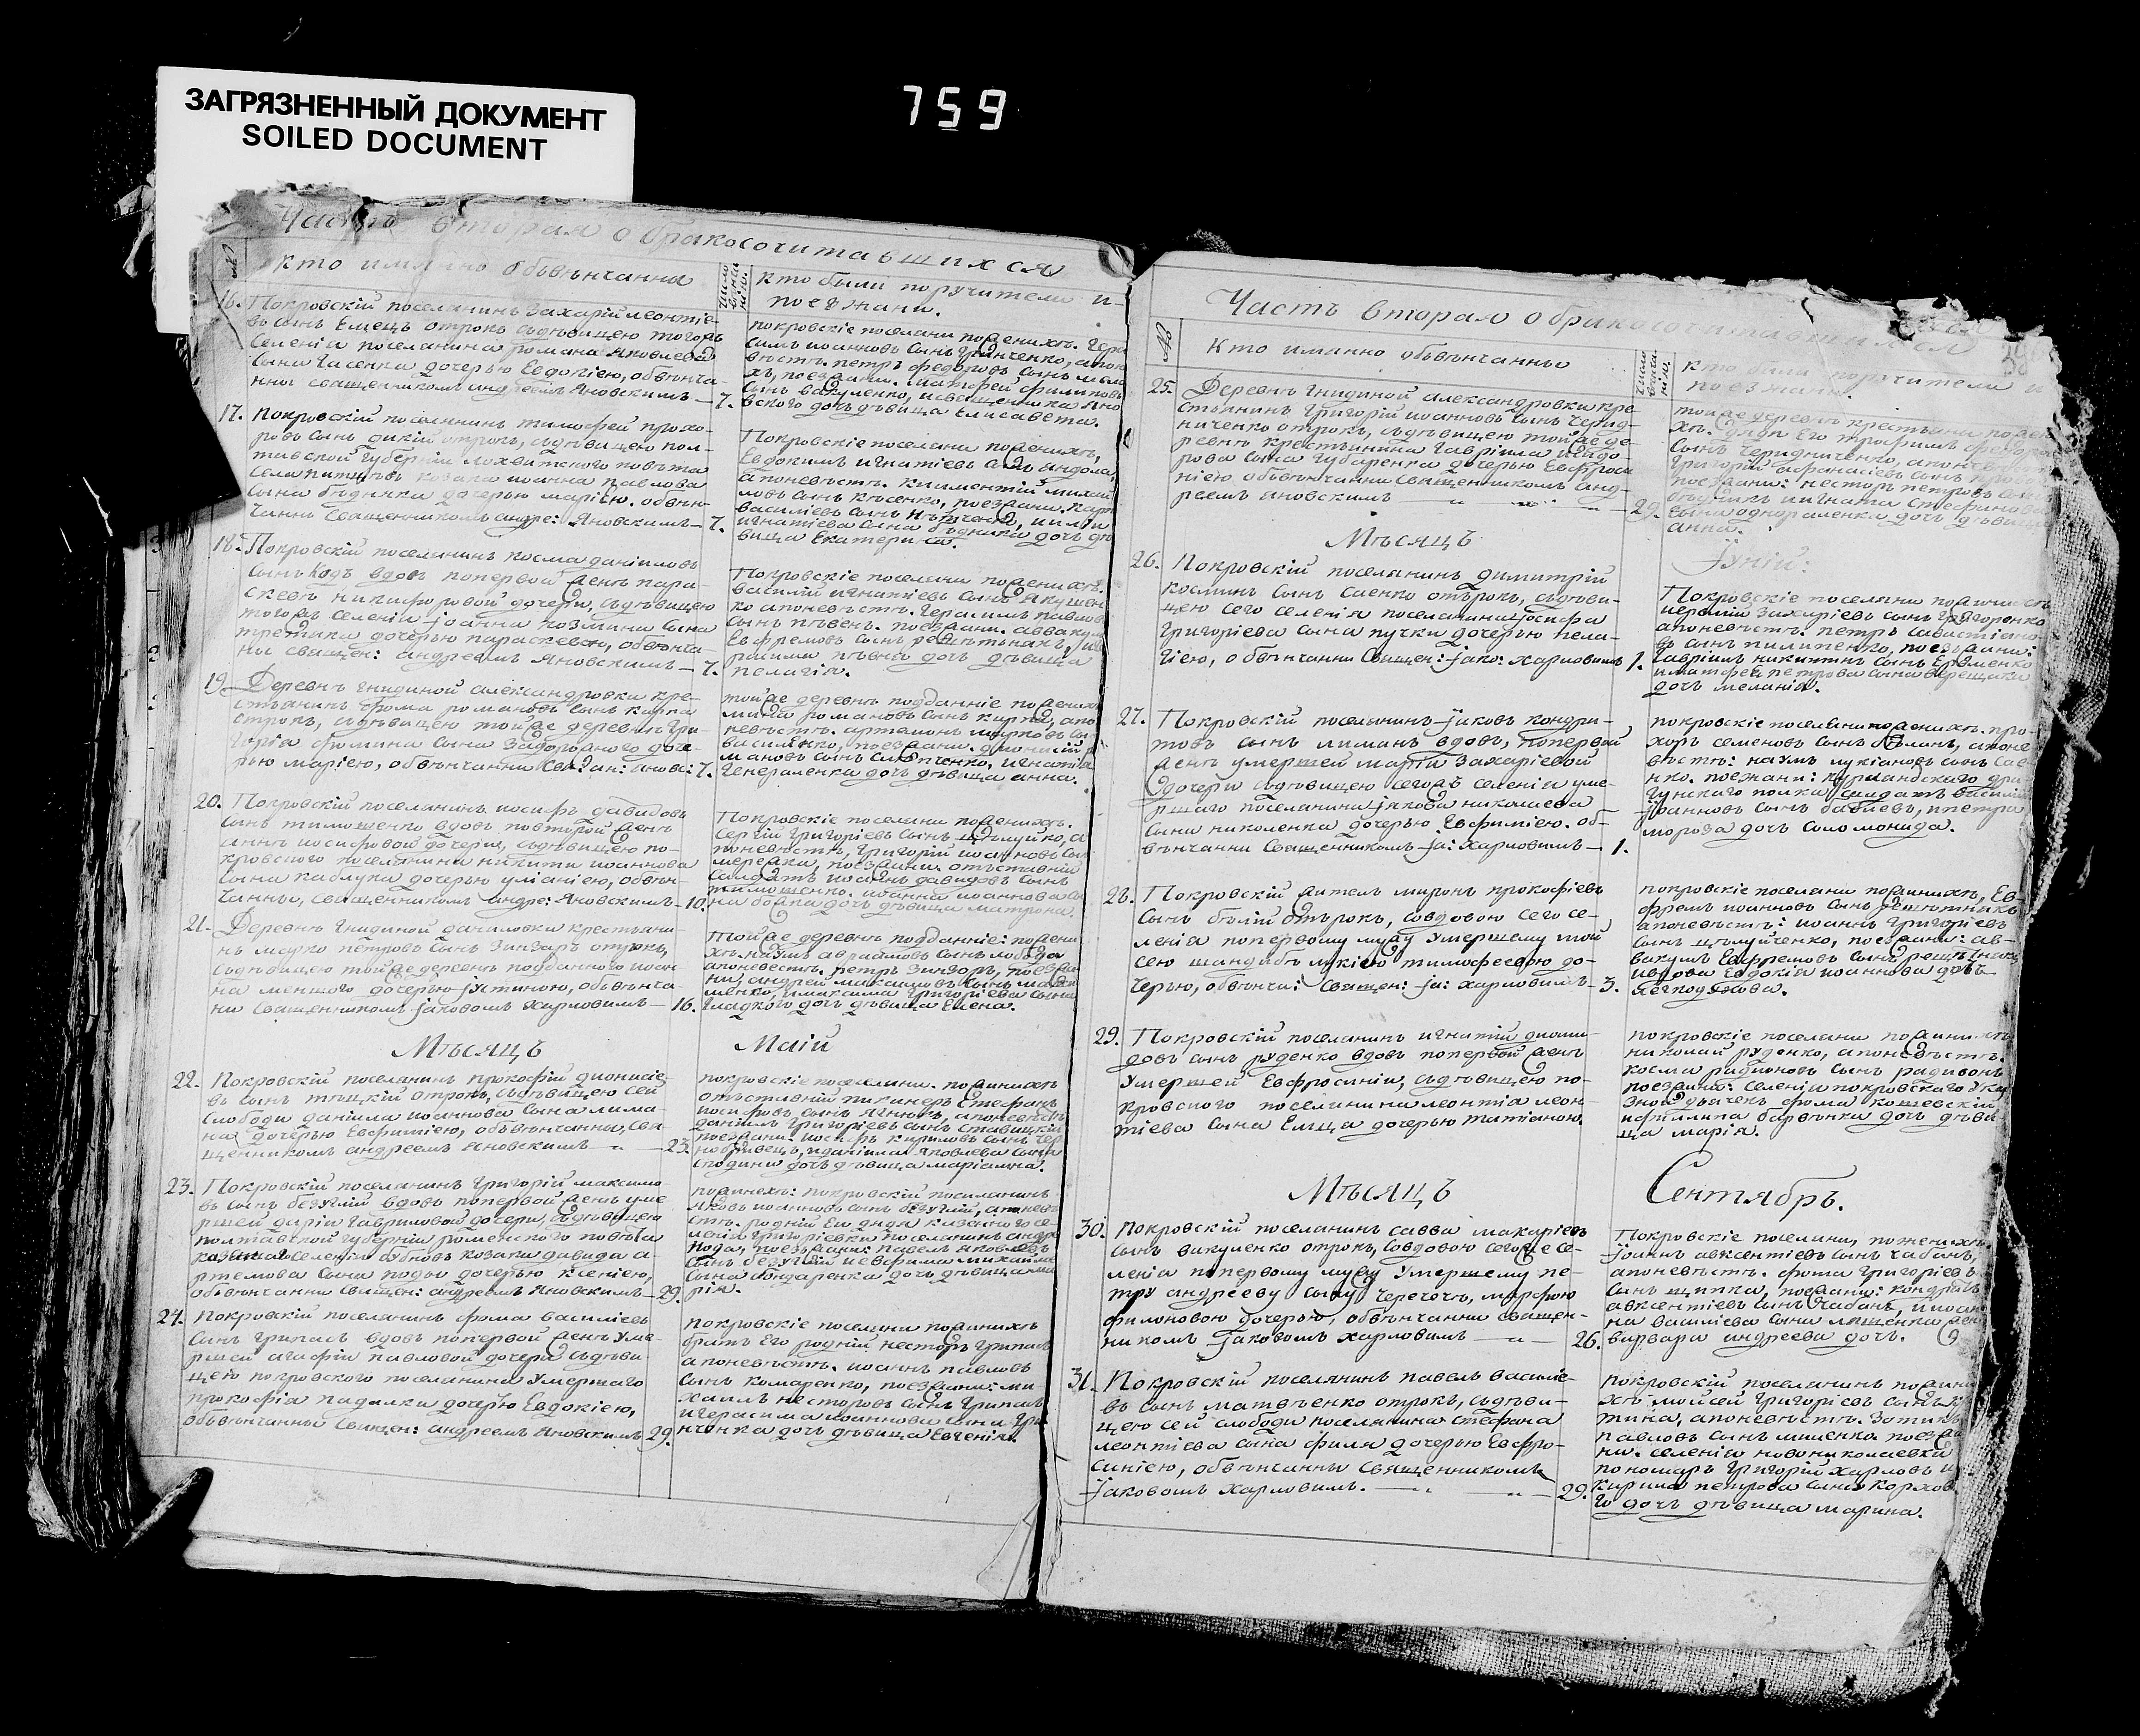 ЗАГРЯЗНЕННЫЙ ДОКУМЕНТ
SOILED DOCUMENT
759
Часть вторая о бракосочитавшихся
№
кто имянно объвѣнчанны
кто были поручители и
поѣжани.
16. Покровскій поселянинъ Захарій леонтіе-
въ сынъ Елецъ отрокъ съдѣвицею тогожъ
селенія поселянина романа Яковлева
сына Часенка дочерью Евдокіею, обвѣнча-
нны священникомъ андреемъ Яновскимъ — 7.
вского дочь дѣвица Елисавета.
17. покровскій поселянинъ тимофей прохо-
ровъ сынъ дикій отрокъ, съдѣвицею пол-
тавской губерніи лохвитского повѣта
козака иоанна павлова
сына бѣдняка дочерью маріею. обвѣн-
чанны священникомъ андре: Яновскимъ — 7.
Покровскіе поселяни поженихѣ,
Евдокимъ игнатіевъ
апоневѣстѣ. климентій михай
ловъ сынъ кѣсенко, поезжани.
игнатіева сына бѣдника дочь дѣ
вица Екатерина.
18. Покровскій поселянинъ косма даніиловъ
сынъ Кодъ вдовъ попервой женѣ пара-
скевѣ никифоровой дочери, съдѣвицею
тогожъ селенія іоанна козмина сына
третяка дочерью параскевою, обвѣнча-
ны священ: андреемъ Яновскимъ — 7.
Покровскіе поселяни поженихѣ.
василій игнатіевъ сынъ Якушен
ко апоневѣстѣ. Герасимъ павлов
сынъ пѣвень. поезжани. аввакумъ
Ефремовъ сынъ решетнякъ,
дочь дѣвица
пелагія.
19. Деревнѣ гнидиной александровки кре-
стьянинъ Фома романовъ сынъ кирпа
отрокъ, съдѣвицею тойже деревнѣ Гри-
горія фомина сына Задорожного доче-
рью маріею, обвѣнчанны Свя: ан: Янов: 7.
тойже деревнѣ подданніе поженихѣ
мина романовъ сынъ кирпа, апо
невѣстѣ. артемонъ марковъ сы
василѣнко, поезжани. дионисій р
мановъ сынъ слѣпченко, игнатія
Генераленка дочь дѣвица анна.
20. Покровскій поселянинъ иосифъ давидовъ
сынъ тимошенко вдовъ повторой женѣ
аннѣ иосифовой дочери, съдѣвицею по-
кровского поселянина никити иоаннова
сына каблука дочерью уліаніею, обвѣн-
чанны, священникомъ андре: Яновскимъ — 10.
Покровскіе поселяни поженихѣ.
Сергій григоріевъ сынъ цѣлуйко, а
поневѣстѣ, григорій иоанновъ сын
мережка, поезжани. отъставній
салдатъ иоаннъ давидовъ сынъ
тимошенко. иоанна иоаннова сы
на бойка дочь дѣвица матрона.
21. Деревнѣ гнидиной даниловки крестьяни-
нъ марко петровъ сынъ Зинзаръ отрокъ,
съдѣвицею тойже деревнѣ подданного иоан
на меншого дочерью Іустиною, объвѣнча
ны Священникомъ Іаковомъ харловимъ — 16.
Тойже деревнѣ подданніе: пожени
хѣ. наумъ авраамовъ сынъ лобода
апоневестѣ. петръ Зинзоръ, поезжа
ни, андрей максимовъ сынъ
менко, имаксима Григоріева сына
гладкого дочь дѣвица Елена.
Мѣсяцъ
Маій
22. Покровскій поселянинъ прокофій дионисіе-
въ сынъ тѣцкій отрокъ, съдѣвицею сей
слободи даніила иоаннова сына лима-
на дочерью Евфиміею, объвѣнчанны, свя
щенникомъ андреемъ Яновскимъ — „ — 23.
покровскіе поселяни. поженихѣ
отъставній пикинеръ Стефанъ
иосифовъ сынъ Ягнюкъ, апоневѣстѣ
даніилъ григоріевъ сынъ ставицкій
поезжани. иосифъ кириловъ сынъ чер
нобривецъ, иданіила Яковлева сына
сподини дочь дѣвица маріамна.
23. Покровскій поселянинъ григорій максимо-
въ сынъ безуглій вдовъ попервой женѣ уме
ршей даріи гавриловой дочери, съдѣвицею
полтавской губерніи роменского повѣта
селенія бубновъ козака давида а-
ртемова сына поды дочерью ксеніею,
обвѣнчанни Священ: андреемъ Яновскимъ — 29.
поженихѣ: покровскій поселянинъ
Яковъ иоанновъ сынъ безуглій, апоневѣ
стѣ. родній Ея дядя казенного се-
ленія григоріевки поселянинъ андре
пода, поезжани: павелъ Яковлевъ
сынъ безуглій иевфима михаила
сына бондаренка дочь дѣвица ма
рія.
24. Покровскій поселянинъ фома василіевъ
сынъ грипасъ вдовъ попервой женѣ уме-
ршей агафіи павловой дочери съдѣви-
цею покровского поселянина умершаго
прокофія падалки дочерю Евдокіею,
объвѣнчанны Священ: андреемъ Яновскимъ 29.
покровскіе поселяни поженихѣ
братъ Его родній несторъ грипасъ
апоневѣстѣ. иоаннъ павловъ
сынъ комаренко, поезжани: ми
хаилъ несторовъ сынъ грипасъ
игерасима иоаннова сына гри
нченка дочь дѣвица Евгенія.
Часть вторая о бракосочитавшихся
№
кто имянно объвѣнчанны
кто были поручители и
поезжани.
25. Деревнѣ гнидиной александровки кре-
стьянинъ григорій иоанновъ сынъ черид-
ниченко отрокъ, съдѣвицею тойже де-
ревнѣ крестьянина гавріила исидо-
рова сына губаренка дочерью Евфроси
ніею, обвѣнчанни Священникомъ анд-
реемъ Яновскимъ „ — „ — 29.
тойже деревнѣ крестьяни пожени
хѣ. дядя Его трофимъ
сынъ чередниченко, апоневѣстѣ
григорій афанасіевъ сынъ
поезжани: несторъ петровъ сынъ
игната стефанова
сына однораленка дочь дѣвица
анна.
Мѣсяцъ
Іуній:
26. Покровскій поселянинъ димитрій
косминъ сынъ Саенко отърокъ, съдѣви-
цею сего селенія поселянина Іосифа
григоріева сына пучки дочерью пела-
гіею, обвѣнчанни Священ: Іако: харловимъ 1.
Покровскіе поселяни поженихѣ
иеремій захаріевъ сынъ григоренко
апоневѣстѣ. петръ савастіано
въ сынъ пилипенко, поезжани:
гавріилъ никитинъ сынъ Еременко
иматфея петрова сына верещаки
дочь меланія.
27. Покровскій поселянинъ Іаковъ кондра-
товъ сынъ лиманъ вдовъ, попервой
женѣ умершей маріи захаріевой
дочери съдѣвицею сегожъ селенія уме-
ршаго поселянина Іакова николаева
сына николенка дочерью Евфиміею. об-
вѣнчанни Священникомъ Іа: харловимъ — 1.
покровскіе поселяни поженихѣ. про-
хоръ семеновъ сынъ бѣланъ, апоне
вѣстѣ: наумъ лукіановъ сынъ сае
нко. поежани: курляндского дра
гунского полка салдатъ василій
Іоанновъ сынъ бабіевъ, ипетра
мороза дочь соломонида.
28. Покровскій житель миронъ прокофіевъ
сынъ бѣлій отърокъ, совдовою сего се-
ленія попервому мужу умершему мой
сею шандибѣ лукіею тимофеевою до-
черью, обвѣнчи: Священ: Іа: харловимъ — 3.
покровскіе поселяни поженихѣ, Ев-
фремъ иоанновъ сынъ решотнякъ
апоневѣстѣ: иоаннъ григоріевъ
сынъ цѣлуйченко, поезжани: ав-
вакумъ Евфремовъ сынъ решѣтнякъ
ивдова Евдокія иоаннова дочь
легкодухова.
29. Покровскій поселянинъ игнатій диоми-
довъ сынъ руденко вдовъ попервой женѣ
умершей Евфросиніи, съдѣвицею по-
кровского поселянина леонтія леон
тіева сына Елца дочерью татіаною.
покровскіе поселяни поженихѣ
николай руденко, апоневѣстѣ.
косма радионовъ сынъ радивонъ
поезжани: селенія покровского ука
зной дьячекъ фома кошевскій
ифилипа барвѣнка дочь дѣви
ца марія.
Мѣсяцъ
Сентябрь.
30. покровскій поселянинъ савва макаріевъ
сынъ викуленко отрокъ, совдовою сегоже се-
ленія попервому мужу умершему пе-
тру андрееву сыну черечечѣ, марфою
филоновою дочерью, обвѣнчанни священ-
никомъ Іаковомъ харловимъ — „ — 26.
Покровскіе поселяни, поженихѣ
Іоаннъ авксентіевъ сынъ чабанъ,
апоневѣстѣ. фома григоріевъ
сынъ щипка, поезжани: кондратъ
авксентіевъ сынъ чабанъ, ииоан
на василіева сына лященка жен
варвара андреева дочь.
31. Покровскій поселянинъ павелъ василіе-
въ сынъ матвѣенко отрокъ, съдѣви-
цею сей слободи поселянина стефана
леонтіева сына филя дочерью Евфро-
синіею, обвѣнчанны Священникомъ
Іаковомъ харловимъ. — „ — „ — 29.
покровскій поселянинъ пожени
хѣ мойсей григоріевъ сынъ
тина, апоневѣстѣ. Зотикъ
павловъ сынъ миненко поезжа
ни. селенія новониколаевки
пономаръ григорій харловъ и
кирила петрова сына коржов
го дочь дѣвица марина.